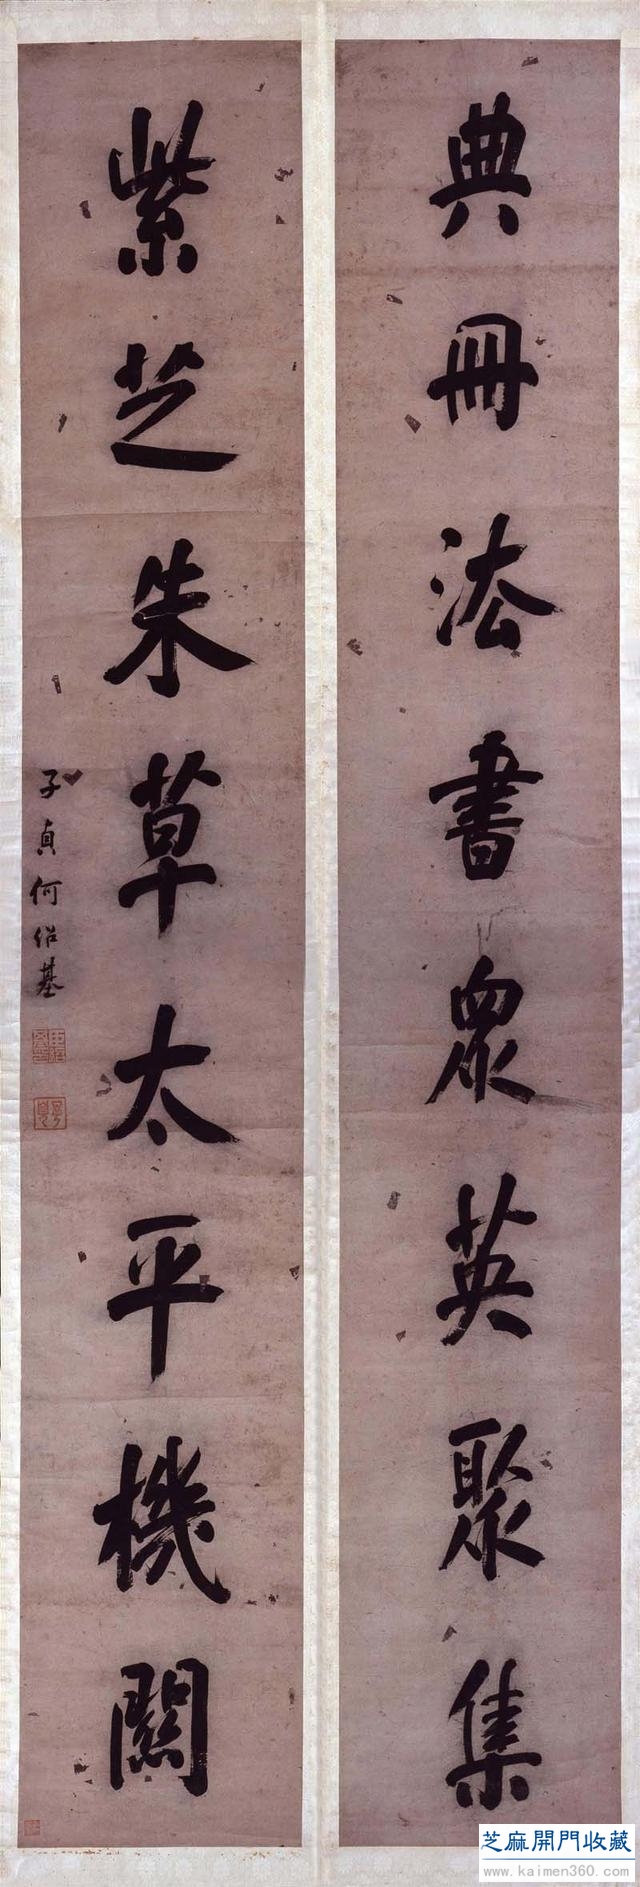 典冊法書眾英聚集
紫芝朱草太平機關
子貞何紹基
芝麻開門收藏
www.kaimen360.com